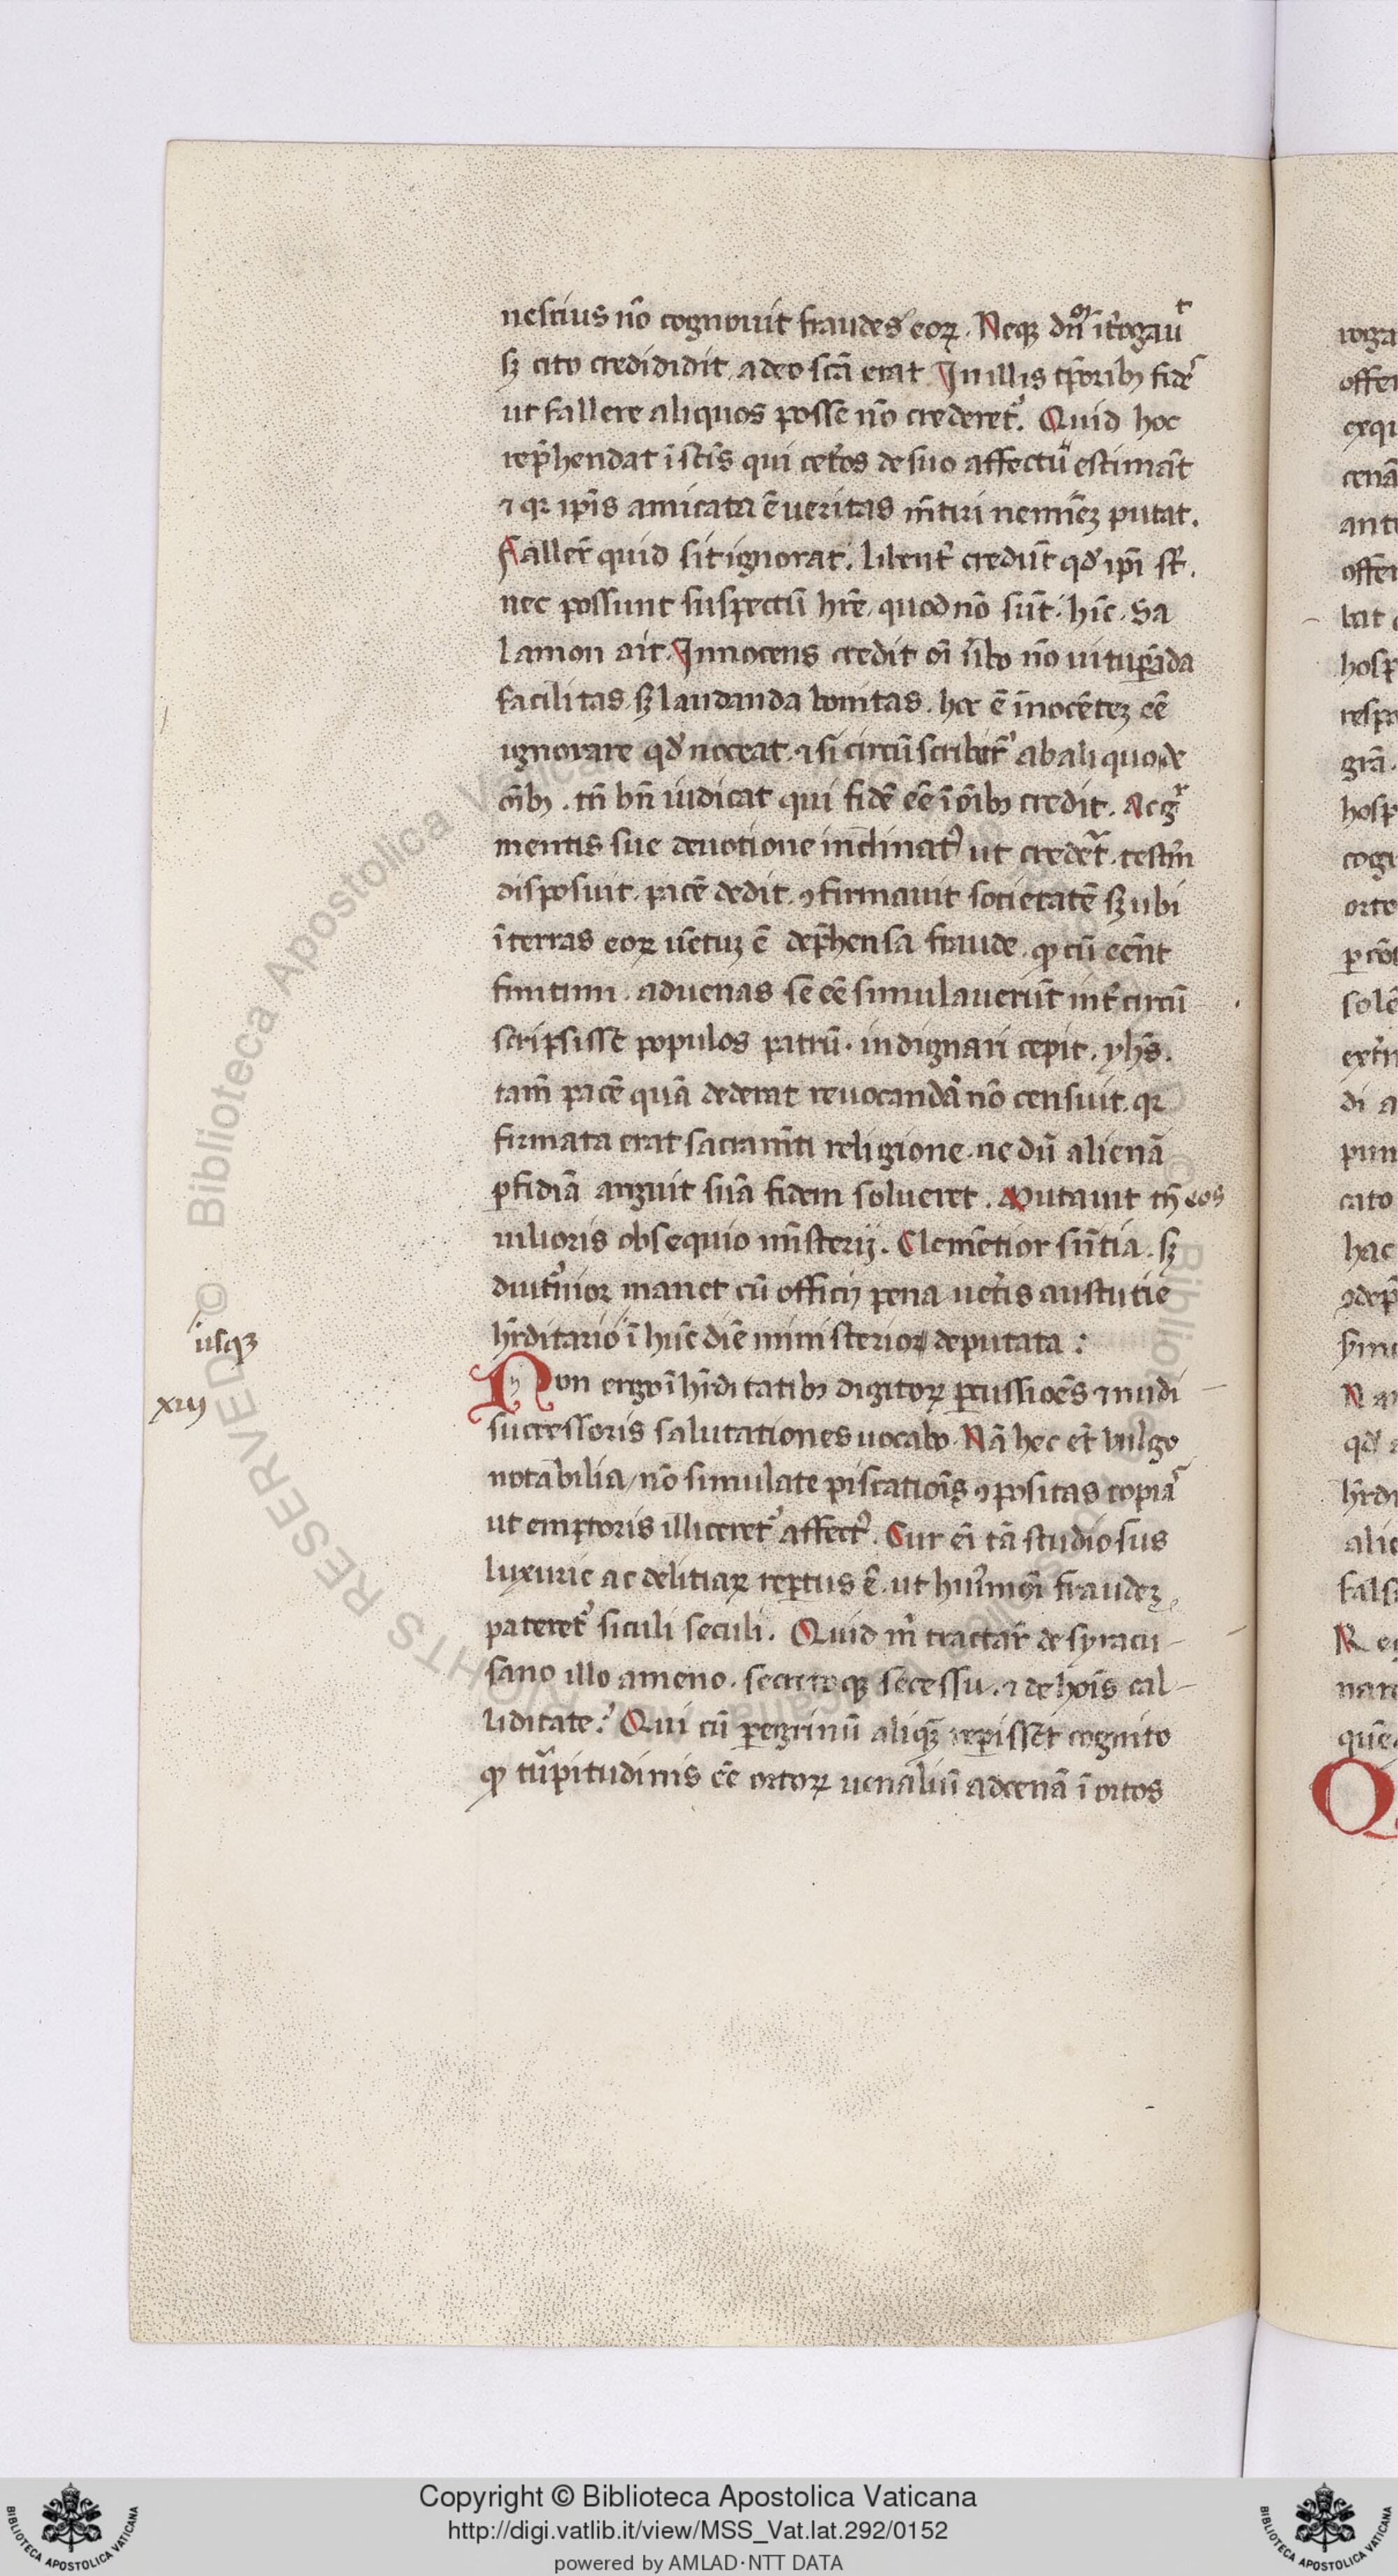 nescius nō cognouit fraudes eoꝝ. Neqꝫ dn̄ it̄rogauᵗ
sꝫ cito credididit adeo scā erat Jn illis tp̄oribꝫ fideˢ
ut fallere aliquos posse nō crederetᷣ. Quid hoc
rep̄hendat ī scīs qui cet̄os de suo affectu estimāt
⁊ qꝛ ip̄is amicata ē ueritas m̄tiri neminēꝫ putat.
Faller̄ quid sit ignorat. libent̄ credūt qd̓ ip̄i st̄.
nec possunt suspectū hr̄e quod nō sūt. hīc. Sa
lamon ait. Jnnocens credit oī ūbo nō uituꝑāda
facilitas sꝫ laudanda bonitas. hec ē īnocēteꝫ eē
ignorare qd̓ noceat. ⁊ si circūscribit̄ ab aliquo de
oībꝫ. tn̄ bn̄ iudicat qui fidē eē ī oībꝫ credit. Ac gͬ
mentis sue deuotione inclinatᷣ ut crederͭ. testm̄
disposuit. pacē dedit. ꝯfirmauit societatē sꝫ ubi
ī terras eoꝝ uētuꝫ ē dep̄hensa fraude. ꝙ cū eēnt
finitimi. aduenas se eē simulauerūt int̄ circū
scripsisse populos patrū. indignari cepit. yhs̄.
tam̄ pacē quā dederat reuocandā nō censuit. qꝛ
firmata erat sacram̄ti religione. ne dū alienā
ꝑfidiā arguit suā fidem solueret. Mutauit tn̄ eos
uilioris obsequio mīsterij. Clemētior sn̄tia. sꝫ
diut̓nior manet cū officij pena uet̄is austutie
hr̄ditario ī hūc diē ministerior deputata :
iusqꝫ
xiiij
Non ergo ī hr̄ditatibꝫ digitoꝝ ꝑcussioēs ⁊ nudi
successoris salutationes uocabo. Nā hec et̄ uulgo
notabilia nō simulate piscatiōis ꝯpositas copiaˢ
ut emptoris illiceretᷣ affectᷣ. Cur ei tā studiosus
luxurie ac delitiaꝝ reꝑtus ē. ut huiꝰmōi fraudeꝫ
pateretᷣ siculi seculi. Quid m̄ tractar̄ de syracu-
sano illo ameno. secretoqꝫ secessu. ⁊ de hoīs cal-
liditate. Qui cū ꝑegrinū aliqꝫ reꝑisset cognito
ꝙ turpitudinis eē ortoꝝ uenaliū ad cenā ī ortos
Copyright © Biblioteca Apostolica Vaticana
http://digi.vatlib.it/view/MSS_Vat.lat.292/0152
powered by AMLAD·NTT DATA